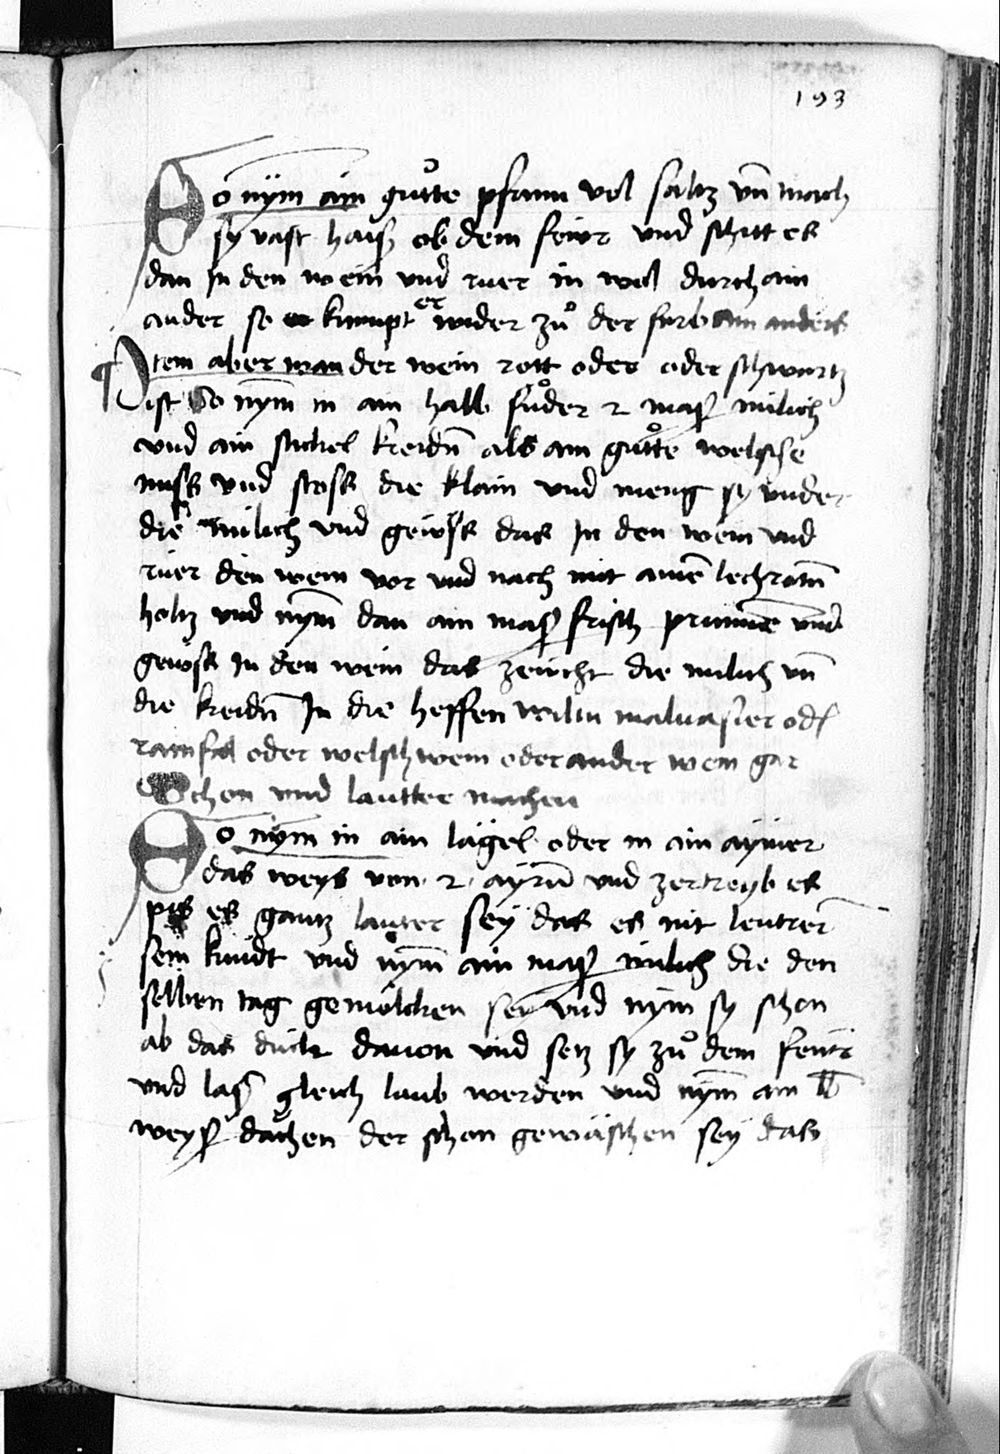 193
So nym ain guͦtte pfann vol saltz vn̄ mach
sy vast haiß ob dem feivr vnd schitt es
dan In den wein vnd ruer in wol durch ain
ander so kumpt er wider zuͦ der farb ain anders
¶ Item aber wan der wein rott oder oder schwartz
ist So nym̄ in ain halb fuͦder 2 maß milich
vnd ain stickel kreidn̄ als ain guͦtte welsche
nuss vnd stoss die klain vnd meng sy vnder
die milich vnd geivss das In den wein vnd
ruer den wein vor vnd nach mit ainē
holtz vnd nym̄ dan ain maß frisch prunnē vnd
geivss In den wein das zeucht die milich vn̄
die kreidn̄ In die heffen Wiltu maluasier od
rainfal oder welsch wein oder ander wein gar
Schon vnd lautter machen
So nym in ain lägel oder in ain aymer
das weys von 2 ayrn̄ vnd zertreyb es
pis es gantz lauter sey das es nit leutrer
sein kindt vnd nym̄ ain maß milich die den
selben tag gemolcken sey vnd nym sy schon
ab das dick dauon vnd setz sy zuͦ dem feur
vnd laß gleich laub werden vnd nym̄ ain lb
weyß der schon gewäschen sey das